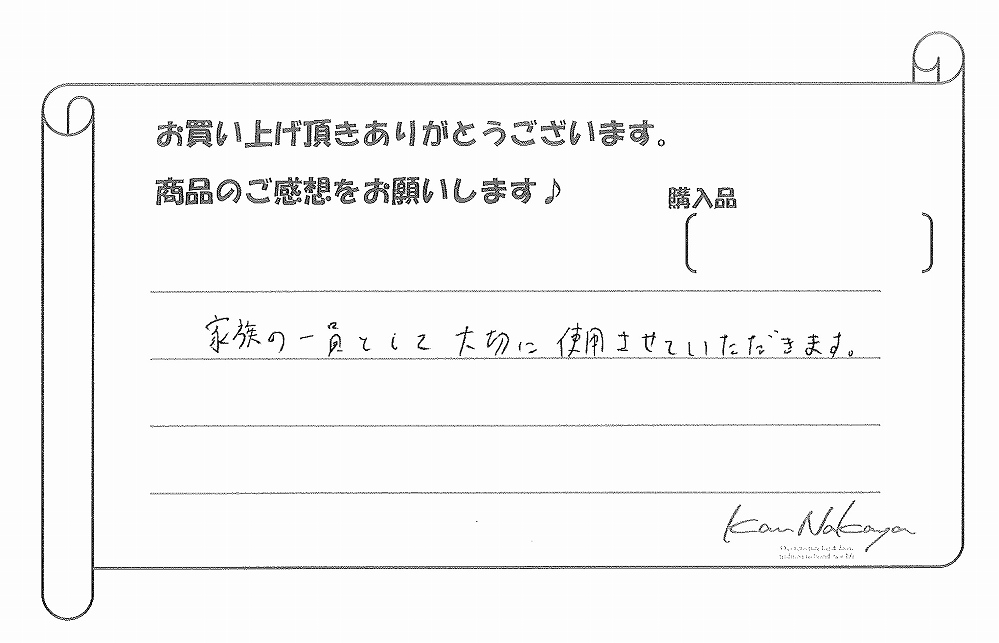 お買い上げ頂きありがとうございます。
商品のご感想をお願いします♪
購入品
家族の一員として大切に使用させていただきます。
Kan Nakaya